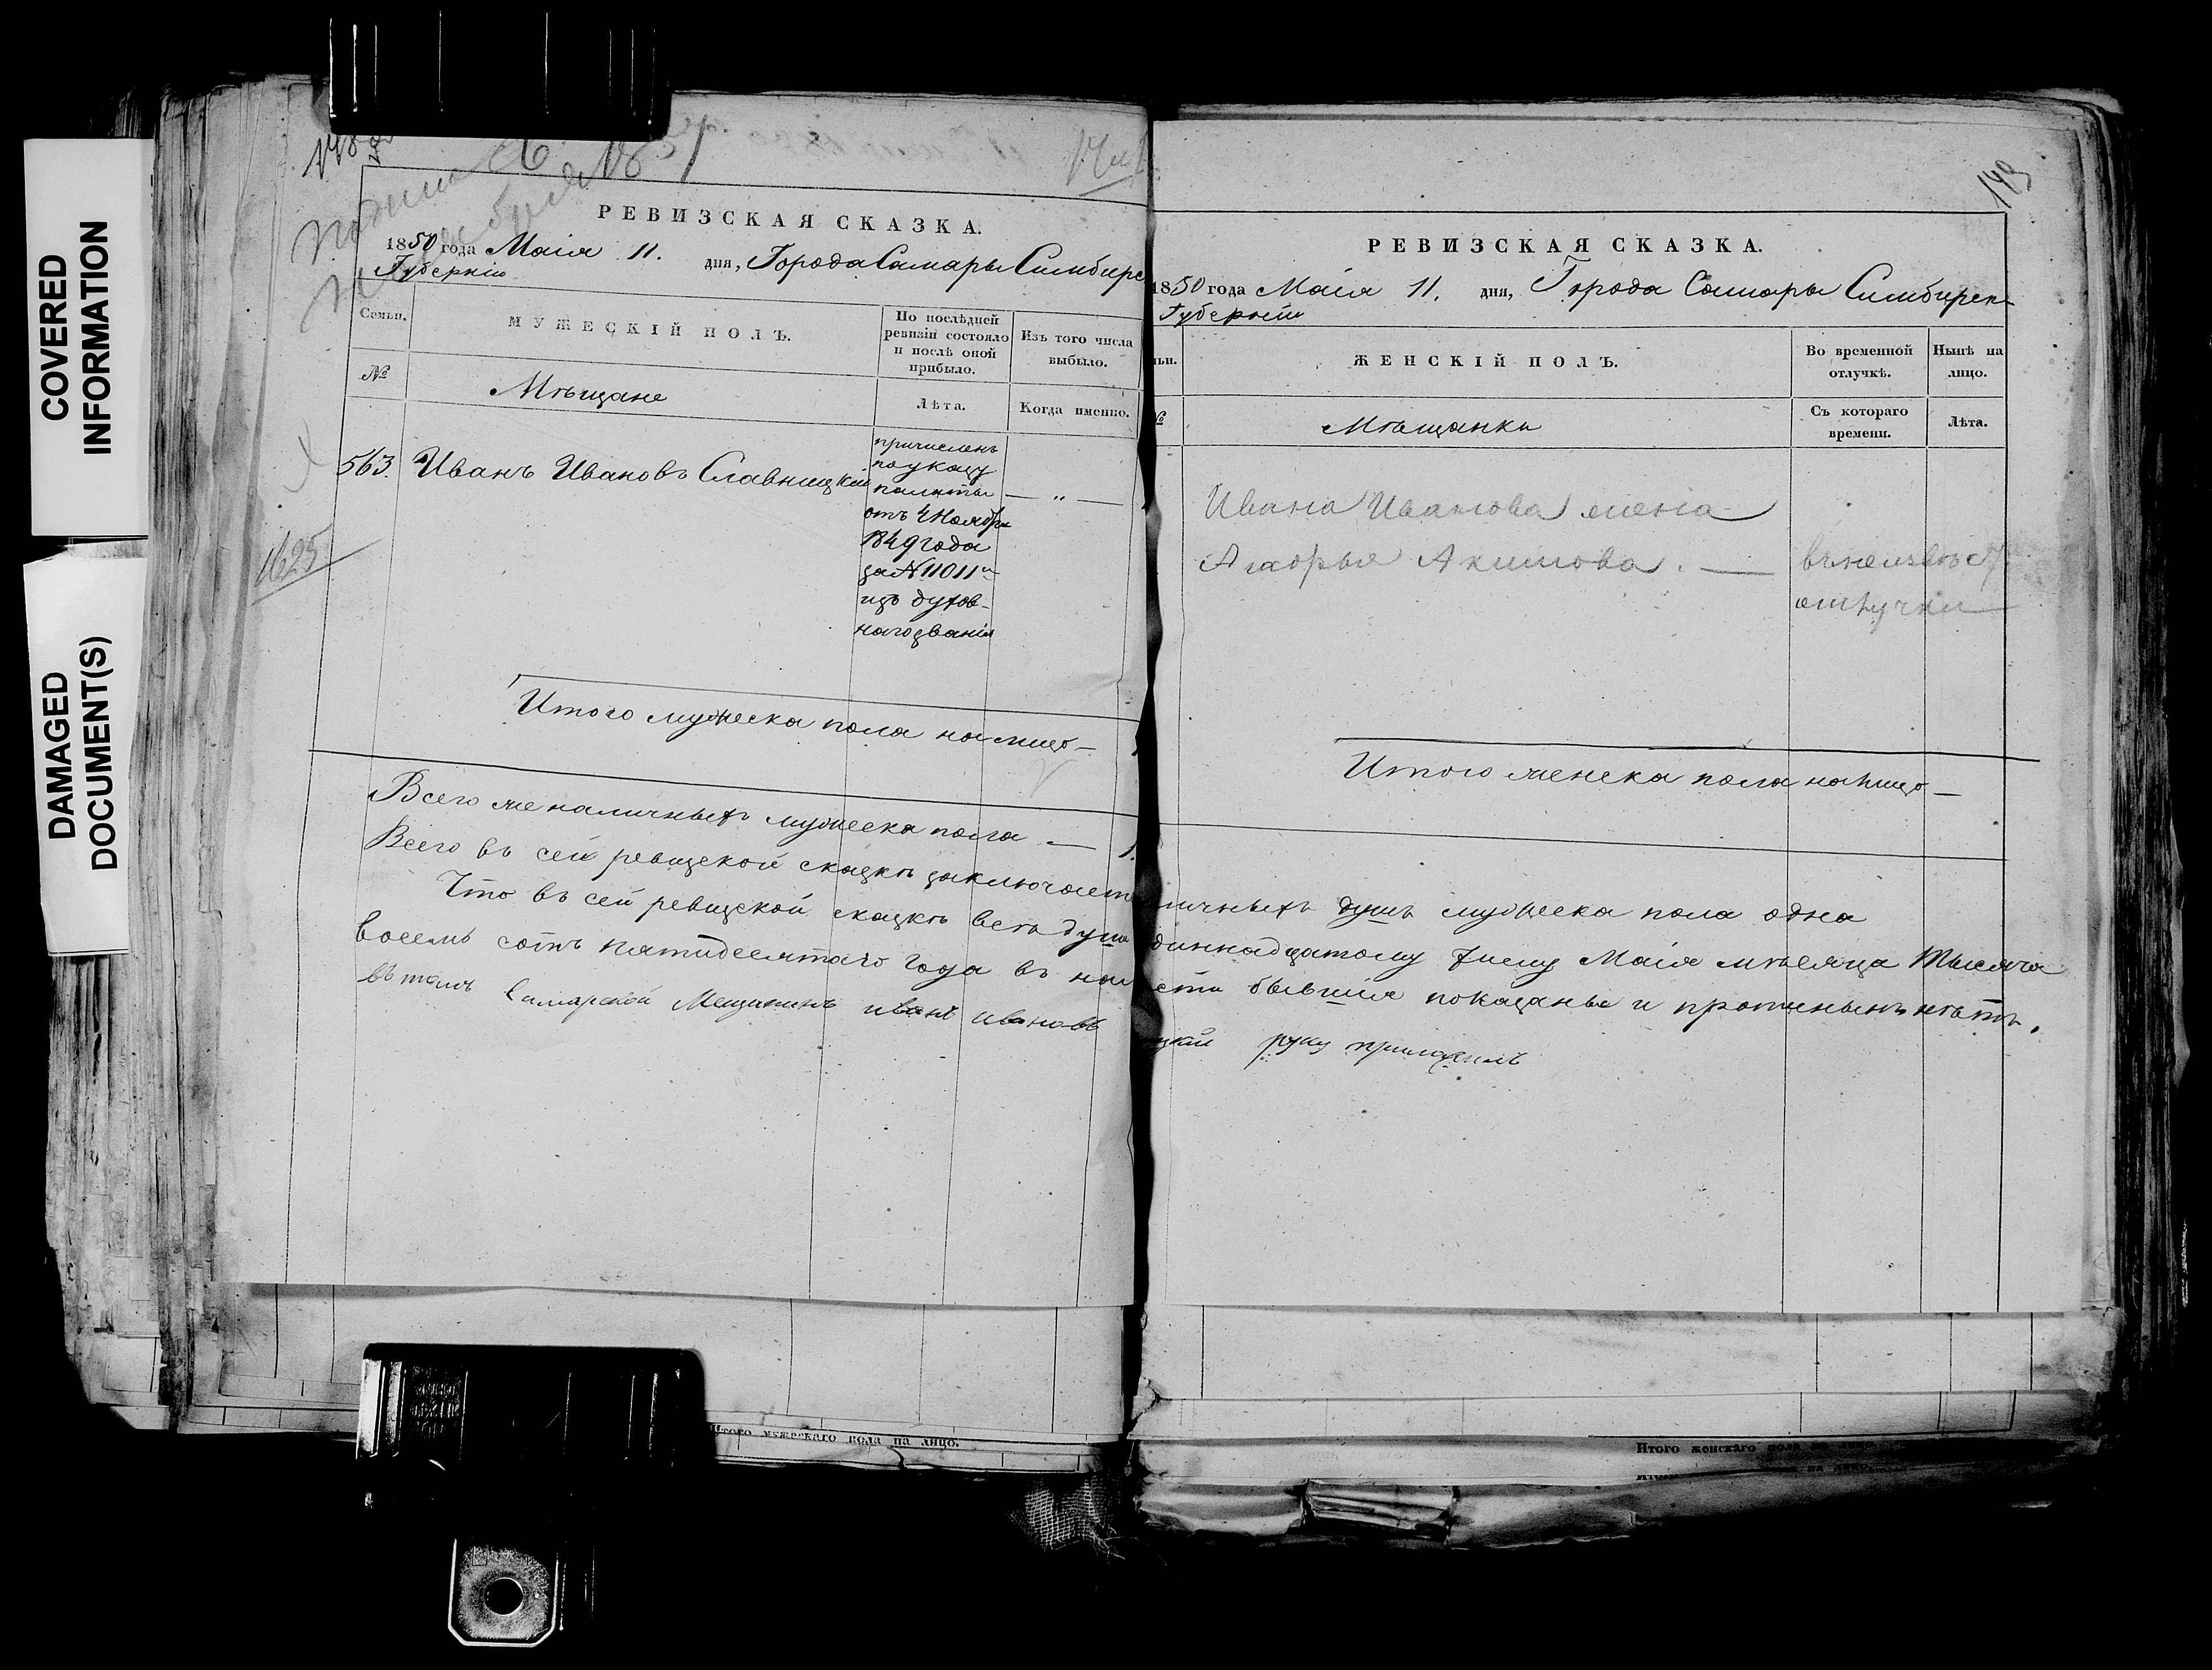 COVERED
INFORMATION
DAMAGED
DOCUMENT(S)
РЕВИЗСКАЯ СКАЗКА.
1850 года Маія 11. дня, Города Самары Симбирс
Губерніи
Семьи.
МУЖЕСКІЙ ПОЛЪ.
По послѣдней
ревизіи состояло
и послѣ оной
прибыло.
Изъ того числа
выбыло.
№
Мѣщане
Лѣта.
Когда именно.
563. Иванъ Ивановъ Славницкій
причисленъ
по указу
палаты
отъ 4 Ноября
1849 года
за № 11011
изъ духов-
наго званія
— „ —
1625
Итого мужеска пола на лицо —
Всего же наличныхъ мужеска пола — 1.
Всего въ сей ревизской сказкѣ заключает
Что въ сей ревизской сказкѣ всѣ души
восемь сотъ пятидесятаго года въ нал
въ томъ Самарской Мещининъ иванъ ивановъ
149
РЕВИЗСКАЯ СКАЗКА.
1850 года Маія 11. дня, Города Самары Симбирск
Губерніи
ьи.
ЖЕНСКІЙ ПОЛЪ.
Во временной
отлучкѣ.
Нынѣ на
лицо.
№
Мѣщанки
Съ котораго
времени.
Лѣта.
Ивана Иванова жена
Акимова. —
отлучки
Итого женска пола на лицо —
личныхъ душъ мужеска пола одна
диннадцатому числу Маія мѣсяца тысяча
сти бывшія показаны и пропис­ныхъ нѣтъ.
цкій руку приложилъ
Итого мужескаго пола на лицо.
Итого женскаго пола на